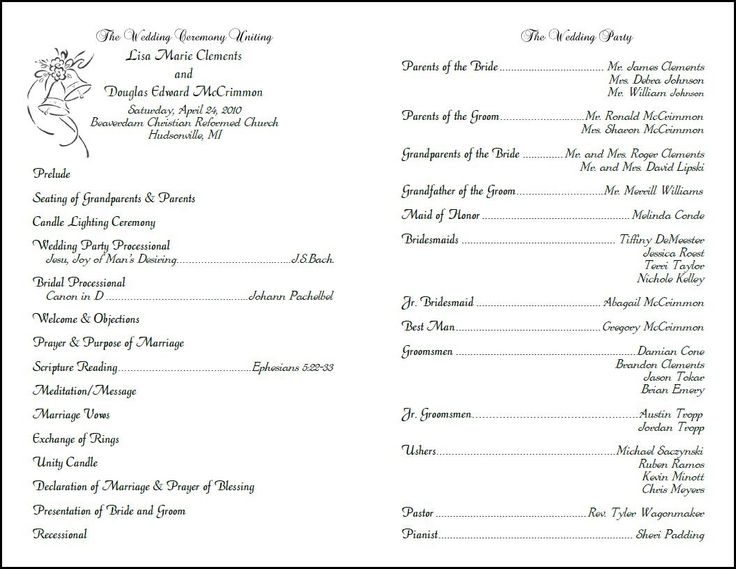 The Wedding Ceremony Uniting
Lisa Marie Clements
and
Douglas Edward McCrimmon
Saturday, April 24, 2010
Beaverdam Christian Reformed Church
Hudsonville, MI
Prelude
Seating of Grandparents & Parents
Candle Lighting Ceremony
Wedding Party Processional
Jesu, Joy of Man's Desiring..............................J.S.Bach
Bridal Processional
Canon in D ..............................Johann Pachelbel
Welcome & Objections
Prayer & Purpose of Marriage
Scripture Reading..............................Ephesians 5:22-33
Meditation/Message
Marriage Vows
Exchange of Rings
Unity Candle
Declaration of Marriage & Prayer of Blessing
Presentation of Bride and Groom
Recessional
The Wedding Party
Parents of the Bride .............................. Mr. James Clements
Mrs. Debra Johnson
Mr. William Johnson
Parents of the Groom..............................Mr. Ronald McCrimmon
Mrs. Sharon McCrimmon
Grandparents of the Bride ..............Mr. and Mrs. Roger Clements
Mr. and Mrs. David Lipski
Grandfather of the Groom..............................Mr. Merrill Williams
Maid of Honor .............................. Melinda Conde
Bridesmaids .............................. Tiffiny DeMeester
Jessica Roest
Terri Taylor
Nichole Kelley
Jr. Bridesmaid .............................. Abagail McCrimmon
Best Man..............................Gregory McCrimmon
Groomsmen ..............................Damian Cone
Brandon Clements
Jason Tokar
Brian Emery
Jr. Groomsmen..............................Austin Tropp
Jordan Tropp
Ushers..............................Michael Saczynski
Ruben Ramos
Kevin Minott
Chris Meyers
Pastor ..............................Rev. Tyler Wagonmaker
Pianist.............................. Sheri Padding